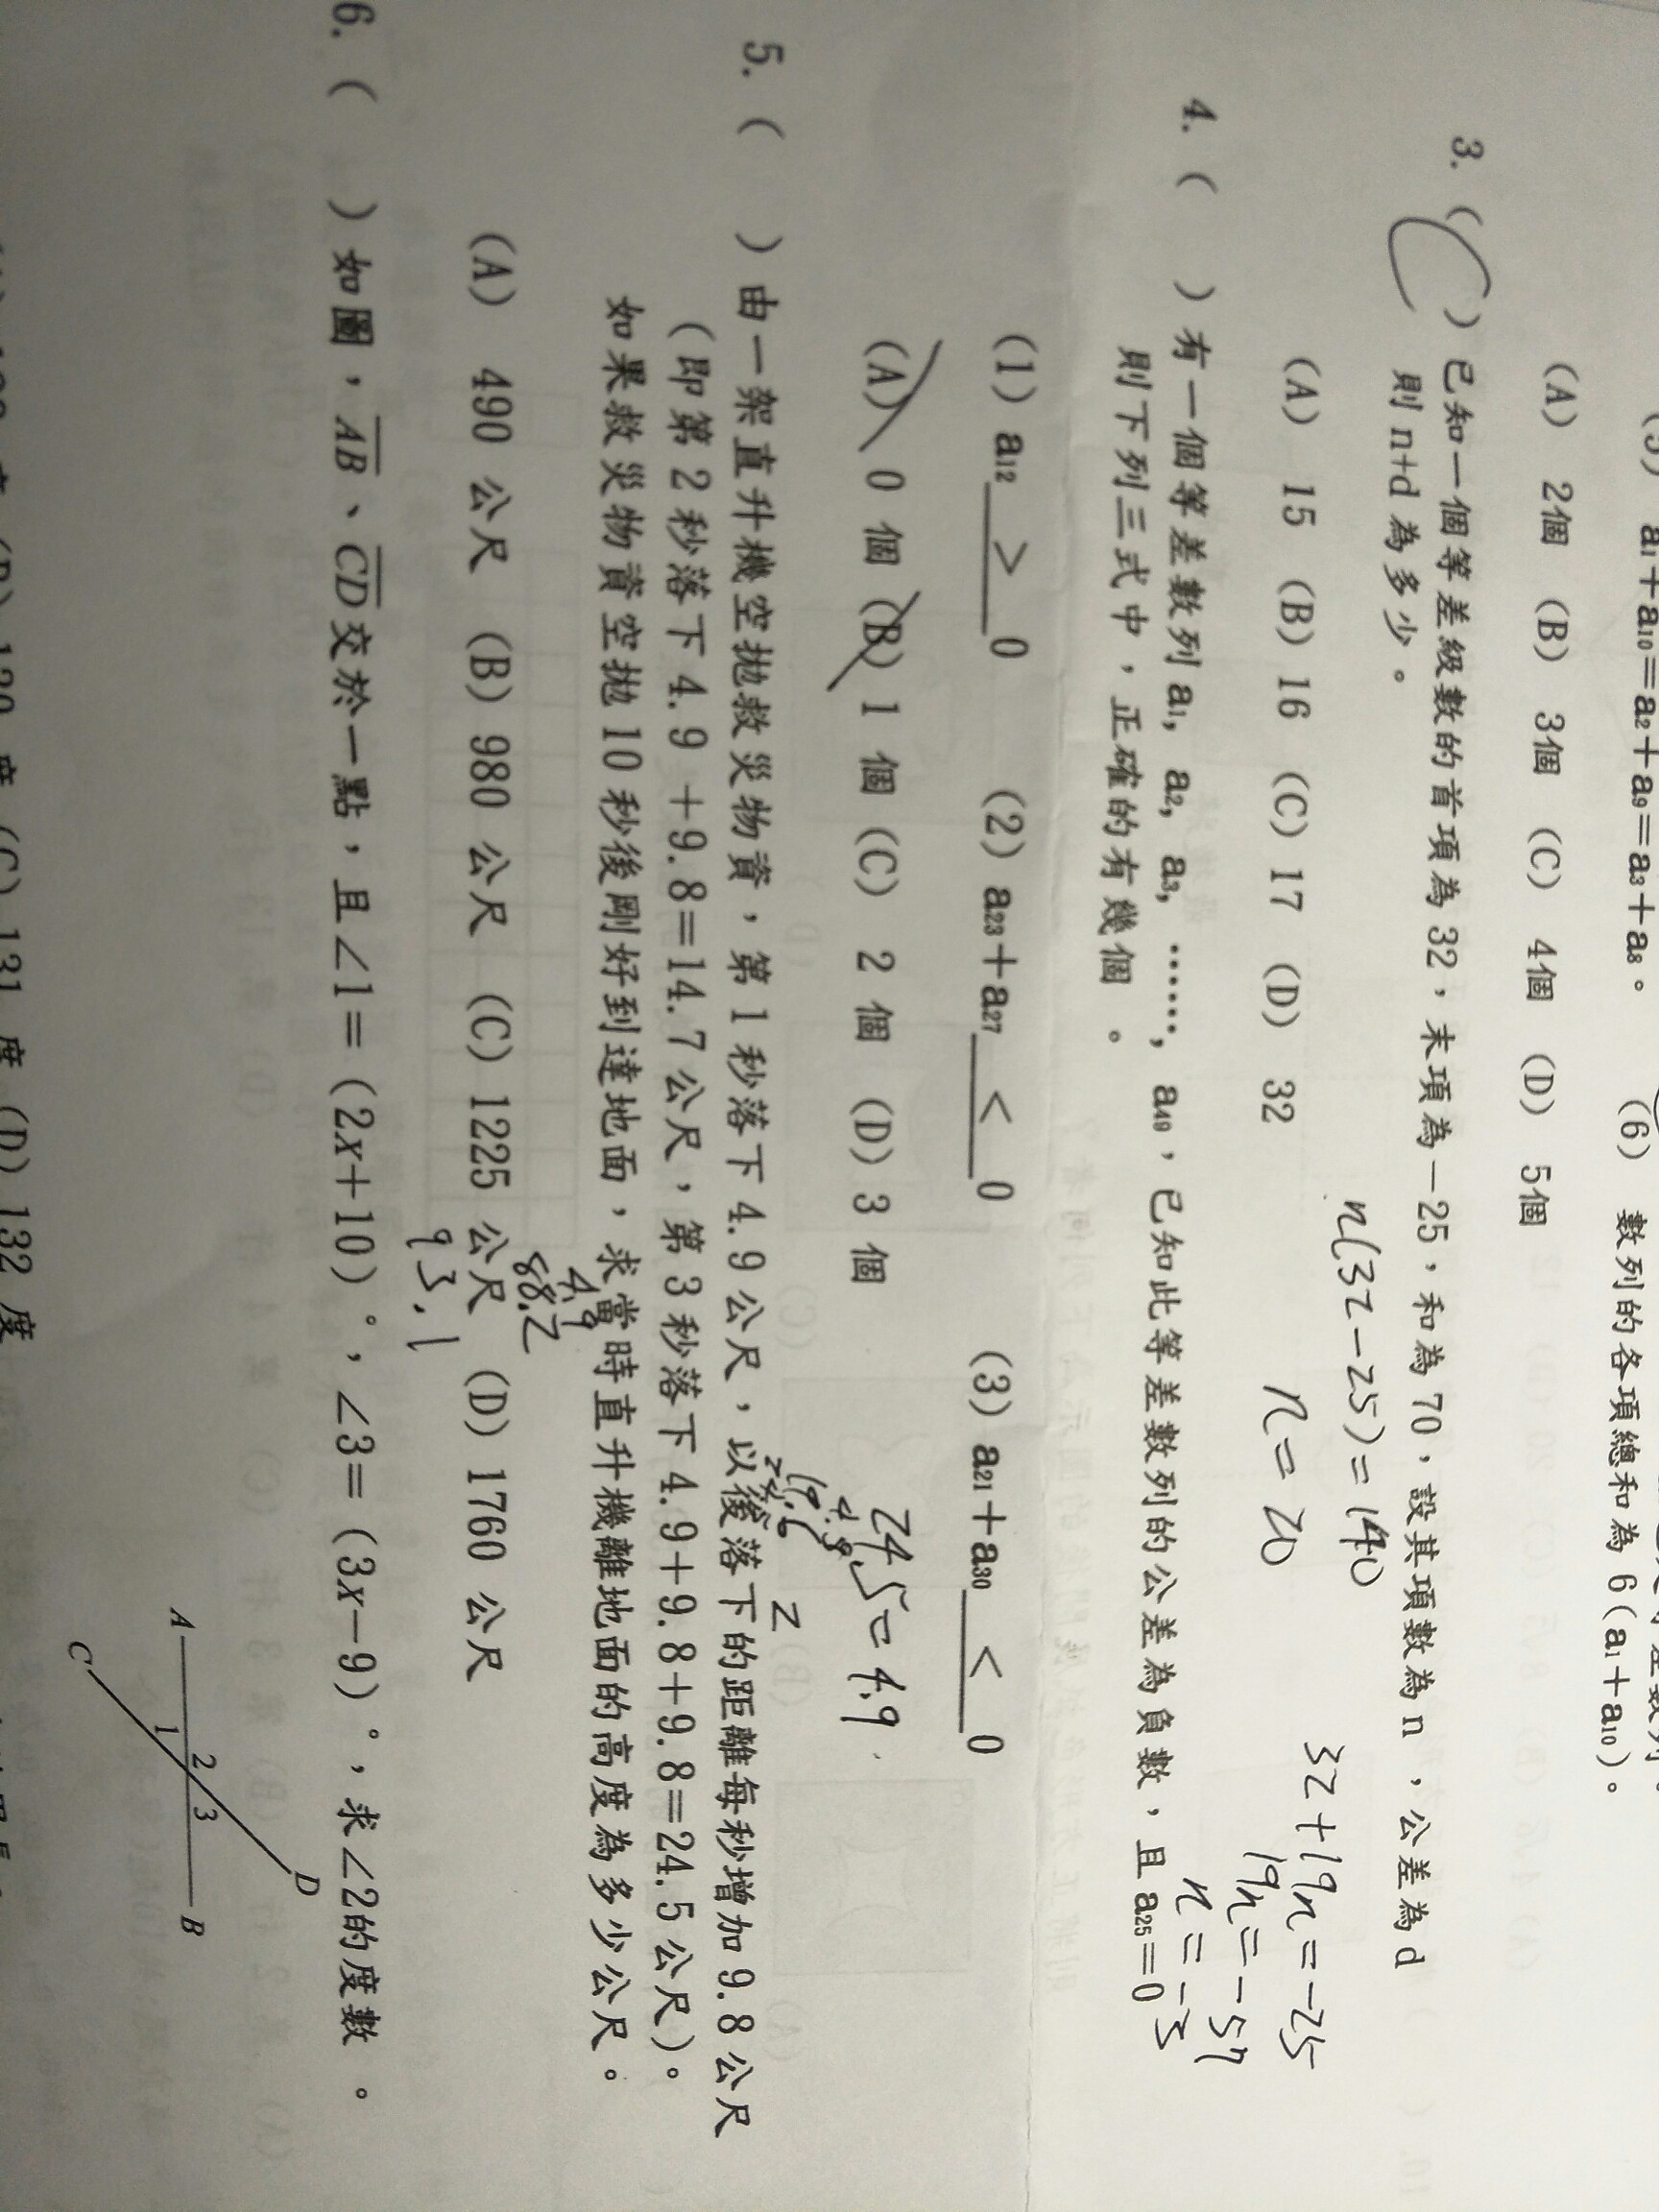 (5) a₁+a₁₀=a₂+a₉=a₃+a₈。 (6) 數列的各項總和為 6(a₁+a₁₀)。
(A) 2個 (B) 3個 (C) 4個 (D) 5個
3. (C) 已知一個等差級數的首項為32，末項為－25，和為70，設其項數為n，公差為d
則n+d為多少。
n(32-25)=140
32+19n=-25
(A) 15 (B) 16 (C) 17 (D) 32
n=20
19n=-57
n=-3
4. ( ) 有一個等差數列 a₁, a₂, a₃, ……, a₄₉，已知此等差數列的公差為負數，且a₂₅=0
則下列三式中，正確的有幾個 。
(1) a₁₂ > 0 (2) a₂₃+a₂₇ < 0 (3) a₂₁+a₃₀ < 0
(A) 0 個 (B) 1 個 (C) 2 個 (D) 3 個
4.9
19.6
5. ( ) 由一架直升機空拋救災物資，第1秒落下4.9公尺，以後落下的距離每秒增加9.8公尺
2
(即第2秒落下4.9 +9.8=14.7公尺，第3秒落下4.9+9.8+9.8=24.5公尺)。
如果救災物資空拋10秒後剛好到達地面，求當時直升機離地面的高度為多少公尺。
4.9
88.2
(A) 490 公尺 (B) 980 公尺 (C) 1225 公尺 (D) 1760 公尺
93.1
6. ( ) 如圖，AB、CD交於一點，且∠1=(2x+10)°，∠3=(3x－9)°，求∠2的度數 。
A 1 2 3 B
C D
(C) 131 度 (D) 132 度